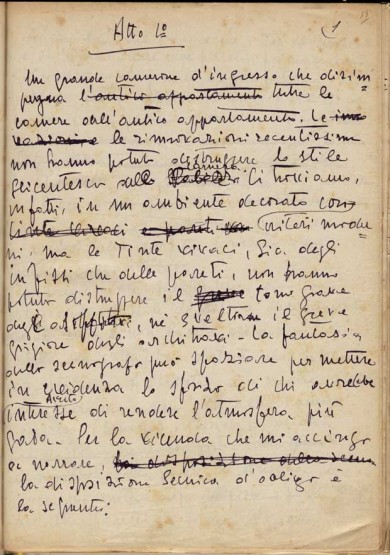 Atto 1º
1
Un grande camerone d'ingresso che disim=
pegna l'antico appartamento tutte le
camere dell'antico appartamento. Le inno
vazioni e le rinnovazioni recentissime
non hanno potuto distruggere lo stile
seicentesco Ci troviamo,
infatti, in un ambiente decorato con
tinte vivaci e pareti criteri moder
ni, ma le tinte vivaci, sia degli
infissi che delle pareti, non hanno
potuto distruggere il tono grave
degli né sveltire il greve
grigiore degli architravi - La fantasia
dello scenografo può spaziare per mettere
in evidenza lo sforzo di chi avrebbe
avuto
interesse di rendere l'atmosfera più
gaia. Per la vicenda che mi accingo
a narrare, la disposizione della scena
la disposizione tecnica d'obbligo è
la seguente: